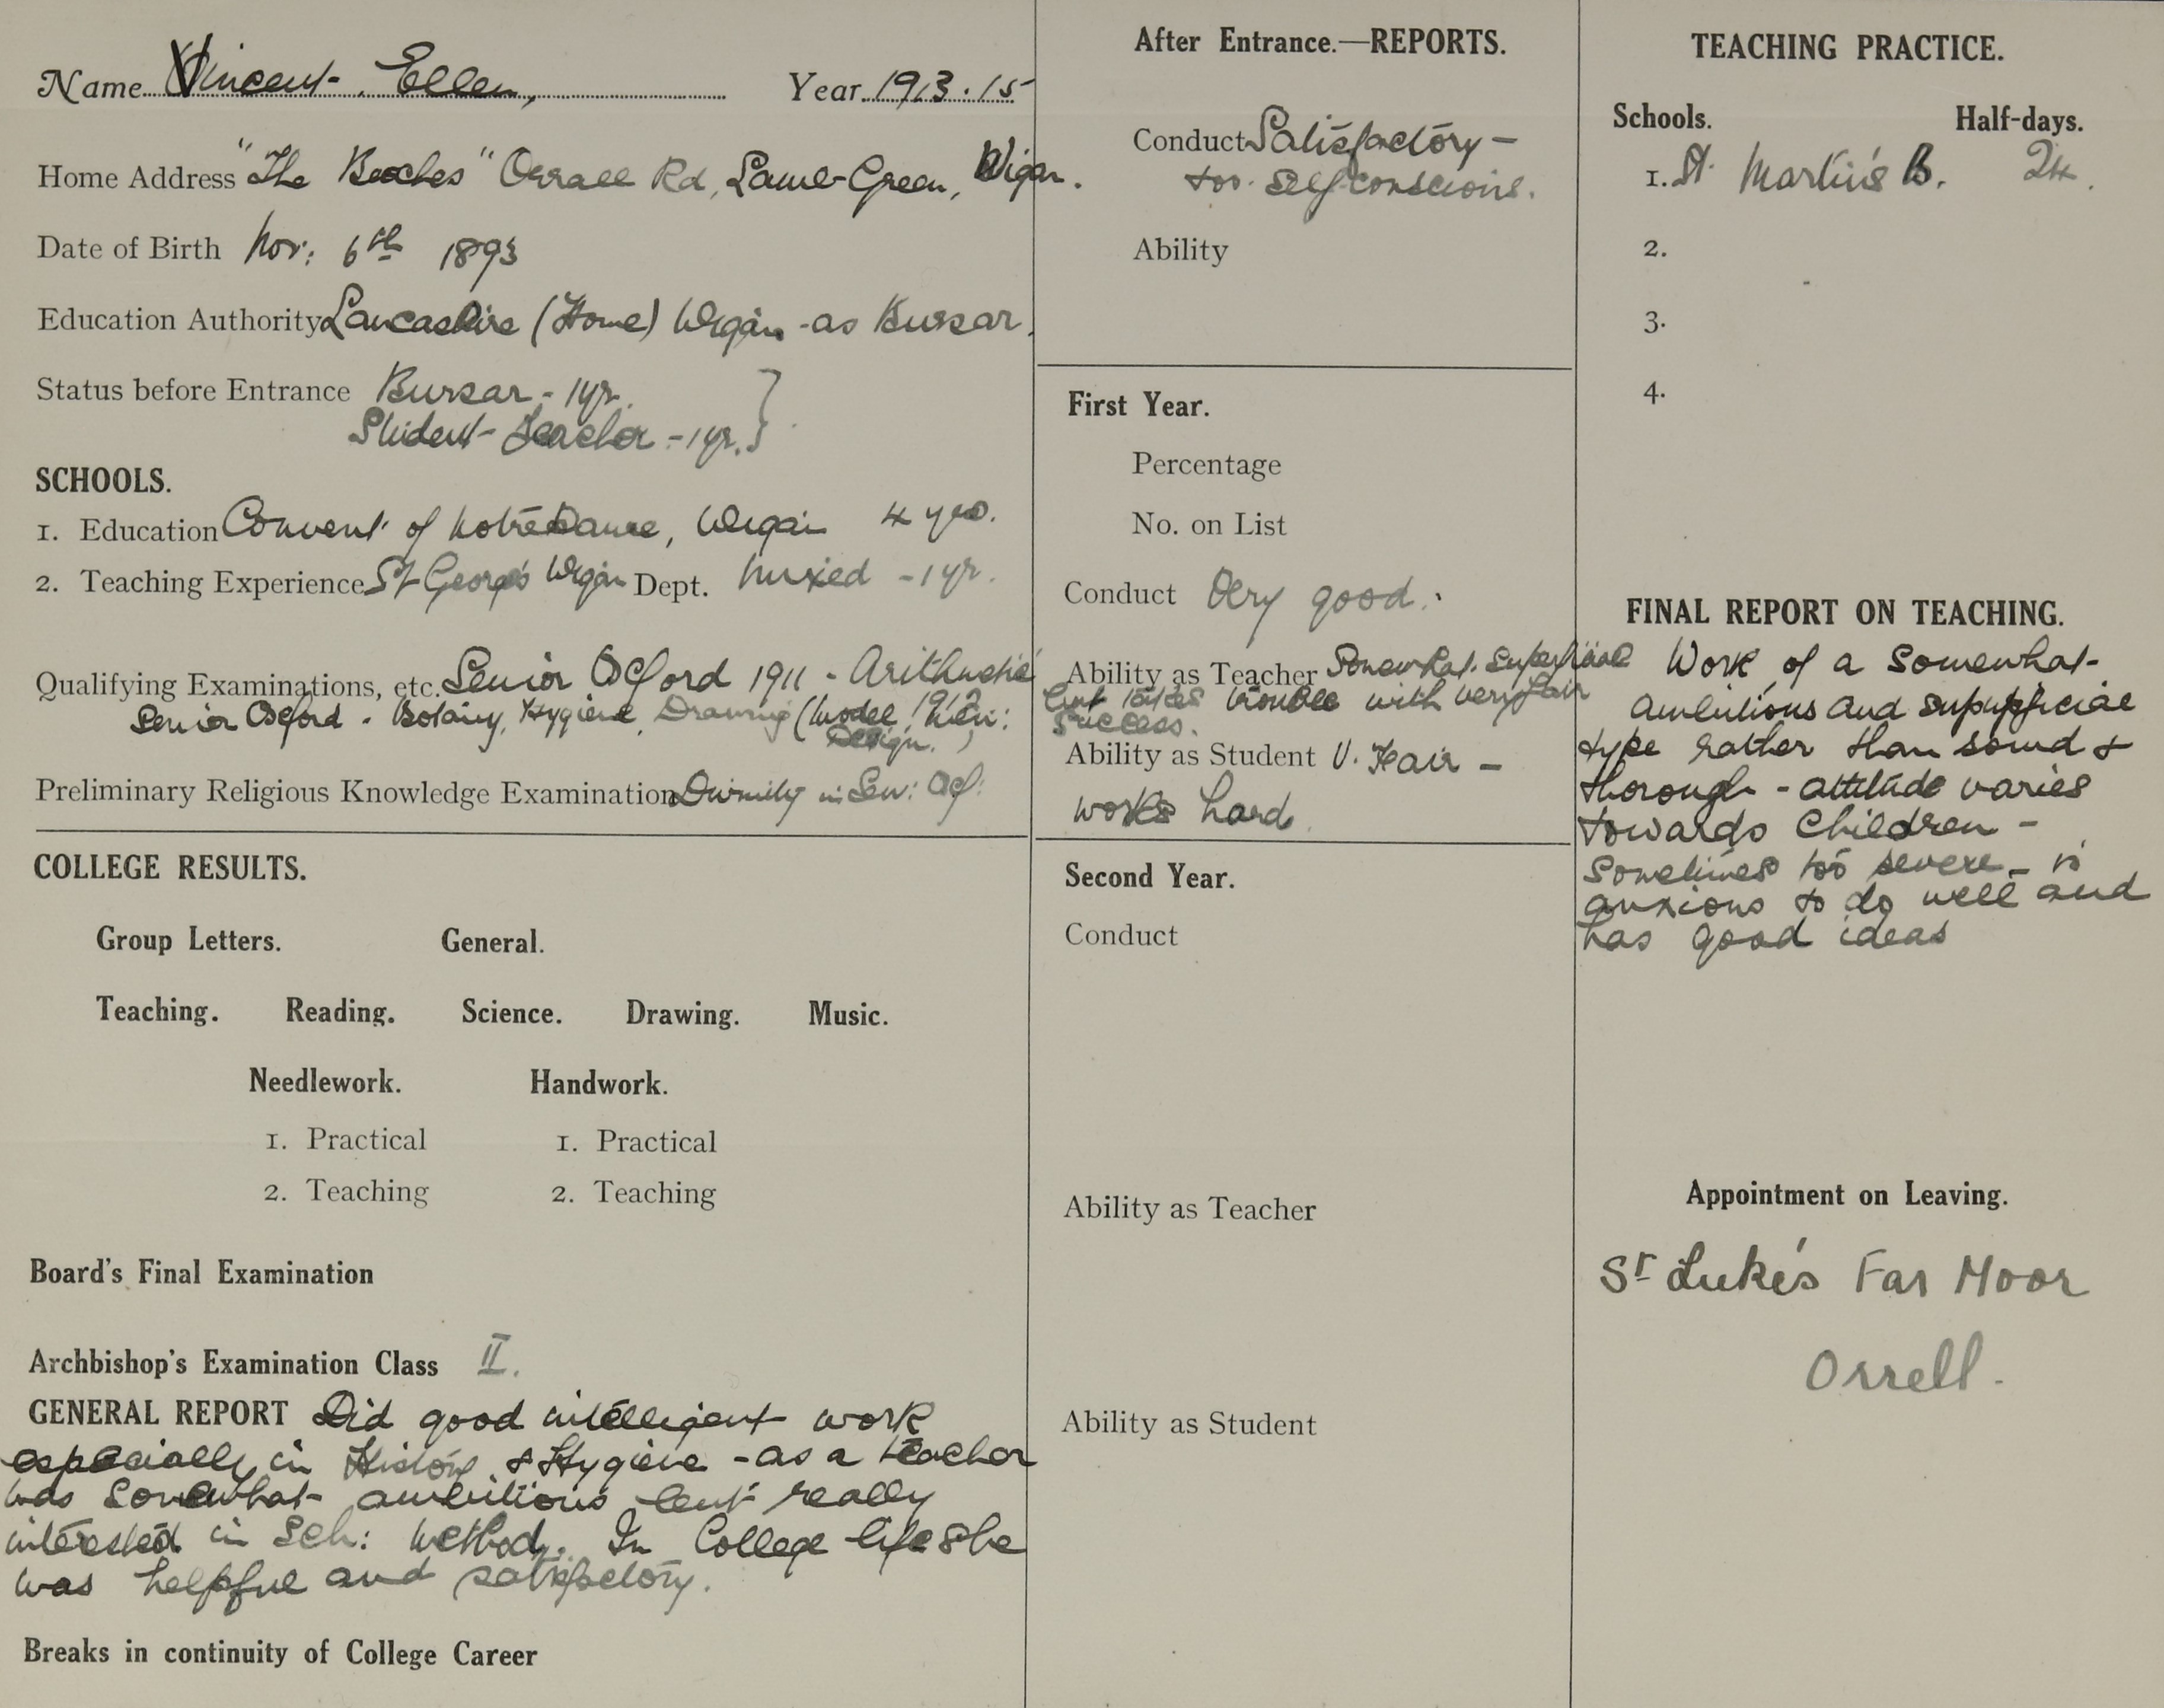 Name Vincent, Ellen, Year 1913.15
Home Address "The Beeches" Orrell Rd, Lamb-Green, Wigan.
Date of Birth Nov: 6th 1893
Education Authority Lancashire (Home) Wigan - as Bursar.
Status before Entrance Bursar - 1yr.
Student-Teacher - 1yr. }
SCHOOLS.
1. Education Convent of Notre Dame, Wigan 4 yrs.
2. Teaching Experience St George's Wigan Dept. Mixed - 1yr.
Qualifying Examinations, etc. Senior Oxford 1911 - Arithmetic
Senior Oxford - Botany, Hygiene, Drawing (Model, 1912, Mem:
Design.)
Preliminary Religious Knowledge Examination Divinity in Sen: Oxf:
COLLEGE RESULTS.
Group Letters. General.
Teaching. Reading. Science. Drawing. Music.
Needlework. Handwork.
1. Practical 1. Practical
2. Teaching 2. Teaching
Board's Final Examination
Archbishop's Examination Class II.
GENERAL REPORT Did good intelligent work
especially in History & Hygiene - as a teacher
was somewhat ambitious but really
interested in Sch: Method. In College life she
was helpful and satisfactory.
Breaks in continuity of College Career
After Entrance.—REPORTS.
Conduct Satisfactory -
too self-conscious.
Ability
First Year.
Percentage
No. on List
Conduct Very good.
Ability as Teacher Somewhat superficial
but takes trouble with very fair
success.
Ability as Student V. Fair -
works hard
Second Year.
Conduct
Ability as Teacher
Ability as Student
TEACHING PRACTICE.
Schools. Half-days.
1. St. Martin's B. 24.
2.
3.
4.
FINAL REPORT ON TEACHING.
Work of a somewhat
ambitious and superficial
type rather than sound &
thorough - attitude varies
towards children -
sometimes too severe - is
anxious to do well and
has good ideas
Appointment on Leaving.
St Luke's Far Moor
Orrell.